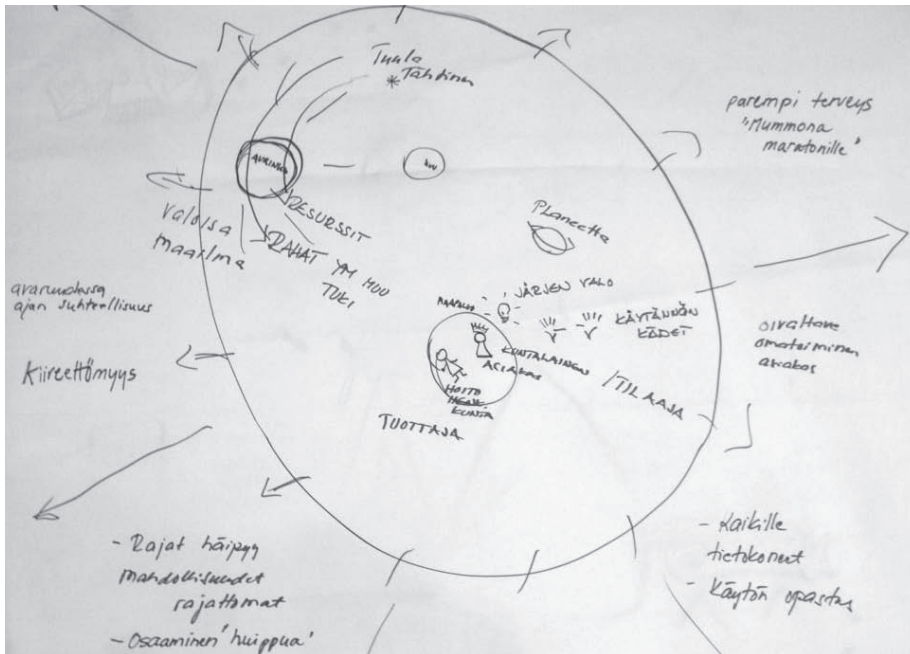 Tuula
Tähtinen
parempi terveys
"Mummona
maratonille"
AURINKO
KUU
Valoisa
maailma
RESURSSIT
RAHAT YM MUU
TUKI
Planeetta
avaruudessa
ajan suhteellisuus
Kiireettömyys
JÄRJEN VALO
KÄYTÄNNÖN
KÄDET
KUNTALAINEN
ASIAKAS
/TILAAJA
HOITO
HENK.
KUNTA
TUOTTAJA
oivaltava
omatoiminen
asiakas
- Rajat häipyy
mahdollisuudet
rajattomat
- Osaaminen 'huippua'
- Kaikille
tietokoneet
- Käytön opastus